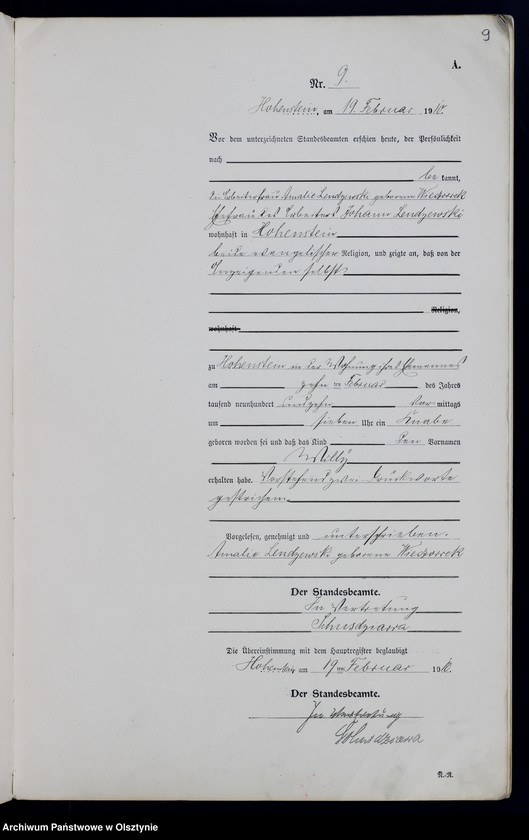 9
A.
Nr. 9.
Hohenstein, am 19. Februar 1910.
Vor dem unterzeichneten Standesbeamten erschien heute, der Persönlichkeit
nach
be kannt,
die Arbeiterfrau Amalie Lendzewski geborene Wieszorrek
Ehefrau des Arbeiters Johann Lendzewski
wohnhaft in Hohenstein
beide evangelischer Religion, und zeigte an, daß von der
Anzeigenden selbst
Religion,
wohnhaft
zu Hohenstein in der Wohnung ihres Ehemannes
am zehn ten Februar des Jahres
tausend neunhundert und zehn Vor mittags
um sieben Uhr ein Knabe
geboren worden sei und daß das Kind den Vornamen
Willy
erhalten habe. Vorstehend zwei Druckworte
gestrichen.
Vorgelesen, genehmigt und unterschrieben.
Amalie Lendzewski geborene Wieszorrek
Der Standesbeamte.
In Vertretung
Schusdziarra
Die Übereinstimmung mit dem Hauptregister beglaubigt
Hohenstein, am 19 ten Februar 1910.
Der Standesbeamte.
In Vertretung
Schusdziarra
N.-N.
Archiwum Państwowe w Olsztynie